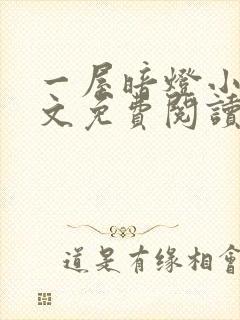 一屋暗燈小
文免費閱讀
道是有缘相會